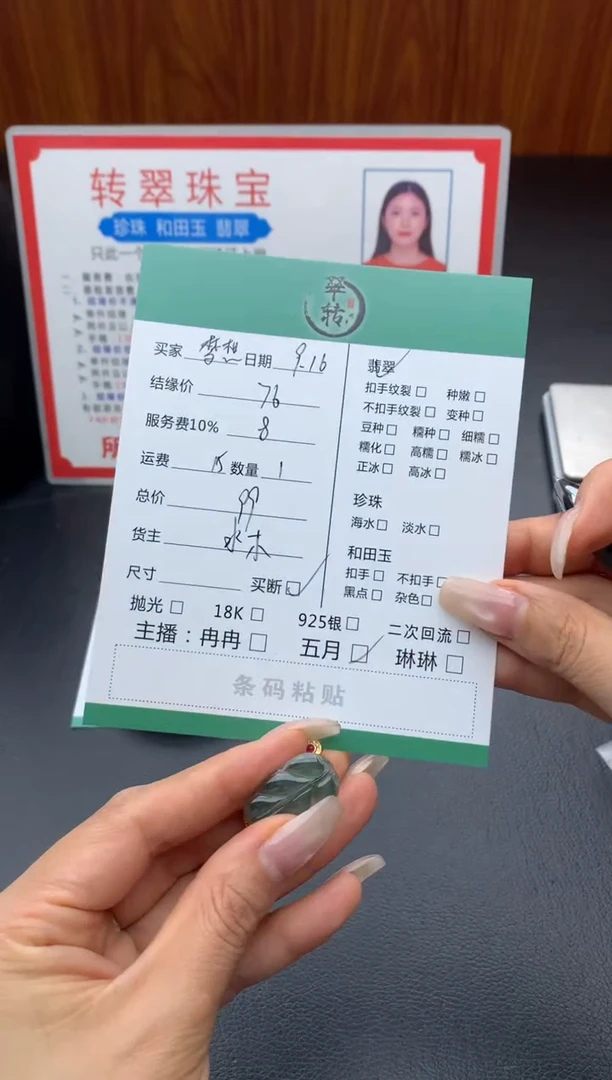 转翠珠宝
珍珠 和田玉 翡翠
只此一个
翠转
买家 梦想 日期 9.16
结缘价 76
服务费10% 8
运费 15 数量 1
总价 99
货主 水木
尺寸 买断
翡翠
扣手纹裂 种嫩
不扣手纹裂 变种
豆种 糯种 细糯
糯化 高糯 糯冰
正冰 高冰
珍珠
海水 淡水
和田玉
扣手 不扣手
黑点 杂色
抛光 18K 925银 二次回流
主播：冉冉 五月 琳琳
条码粘贴